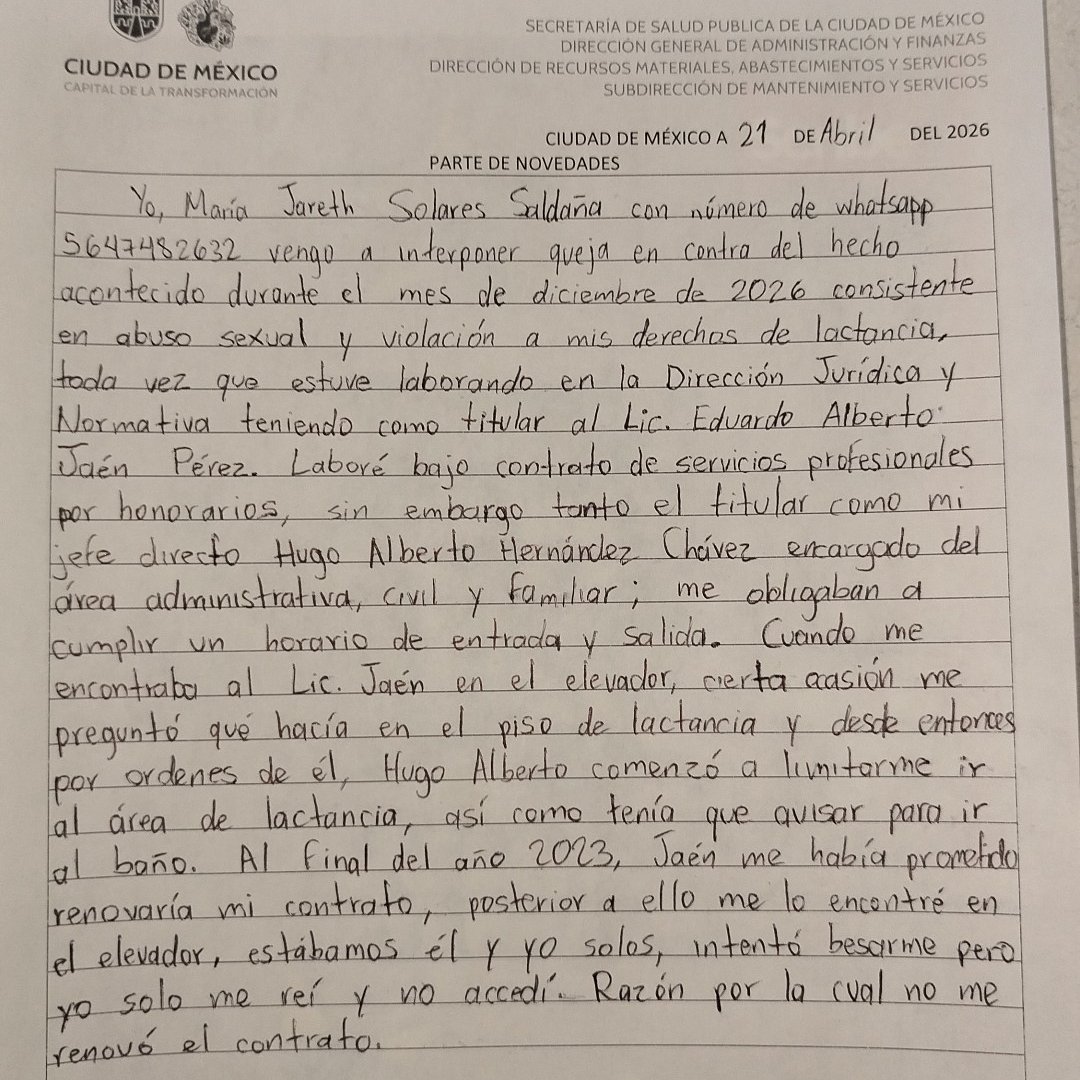 CIUDAD DE MÉXICO
CAPITAL DE LA TRANSFORMACIÓN
SECRETARÍA DE SALUD PUBLICA DE LA CIUDAD DE MÉXICO
DIRECCIÓN GENERAL DE ADMINISTRACIÓN Y FINANZAS
DIRECCIÓN DE RECURSOS MATERIALES, ABASTECIMIENTOS Y SERVICIOS
SUBDIRECCIÓN DE MANTENIMIENTO Y SERVICIOS
CIUDAD DE MÉXICO A 21 DE Abril DEL 2026
PARTE DE NOVEDADES
Yo, María Jareth Solares Saldaña con número de whatsapp
5647482632 vengo a interponer queja en contra del hecho
acontecido durante el mes de diciembre de 2026 consistente
en abuso sexual y violación a mis derechos de lactancia,
toda vez que estuve laborando en la Dirección Jurídica y
Normativa teniendo como titular al Lic. Eduardo Alberto
Jaén Pérez. Laboré bajo contrato de servicios profesionales
por honorarios, sin embargo tanto el titular como mi
jefe directo Hugo Alberto Hernández Chávez encargado del
área administrativa, civil y familiar; me obligaban a
cumplir un horario de entrada y salida. Cuando me
encontraba al Lic. Jaén en el elevador, cierta oasión me
preguntó qué hacía en el piso de lactancia y desde entonces
por ordenes de él, Hugo Alberto comenzó a limitarme ir
al área de lactancia, así como tenía que avisar para ir
al baño. Al final del año 2023, Jaén me había prometido
renovaría mi contrato, posterior a ello me lo encontré en
el elevador, estábamos él y yo solos, intentó besarme pero
yo solo me reí y no accedí. Razón por la cual no me
renovó el contrato.